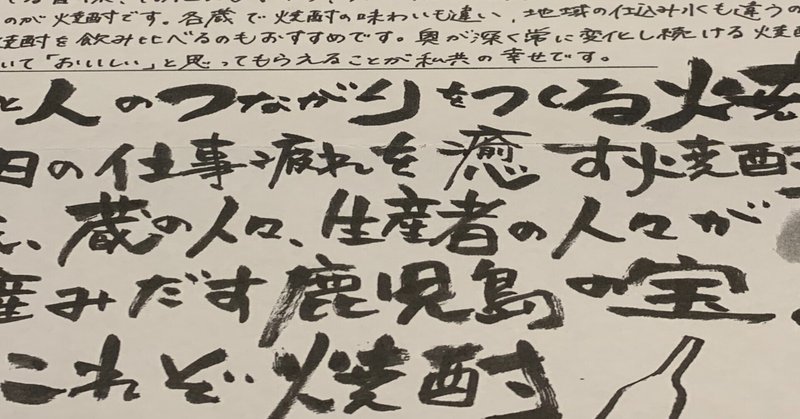 のが焼酎です。各蔵で焼酎の味わいも違い、地域の仕込み水も違うの
焼酎を飲み比べるのもおすすめです。奥が深く常に変化し続ける焼酎
いて「おいしい」と思ってもらえることが私共の幸せです。
と人のつながりをつくる焼
日の仕事疲れを癒す焼酎
い、蔵の人々、生産者の人々が
産みだす鹿児島の宝。
これぞ焼酎